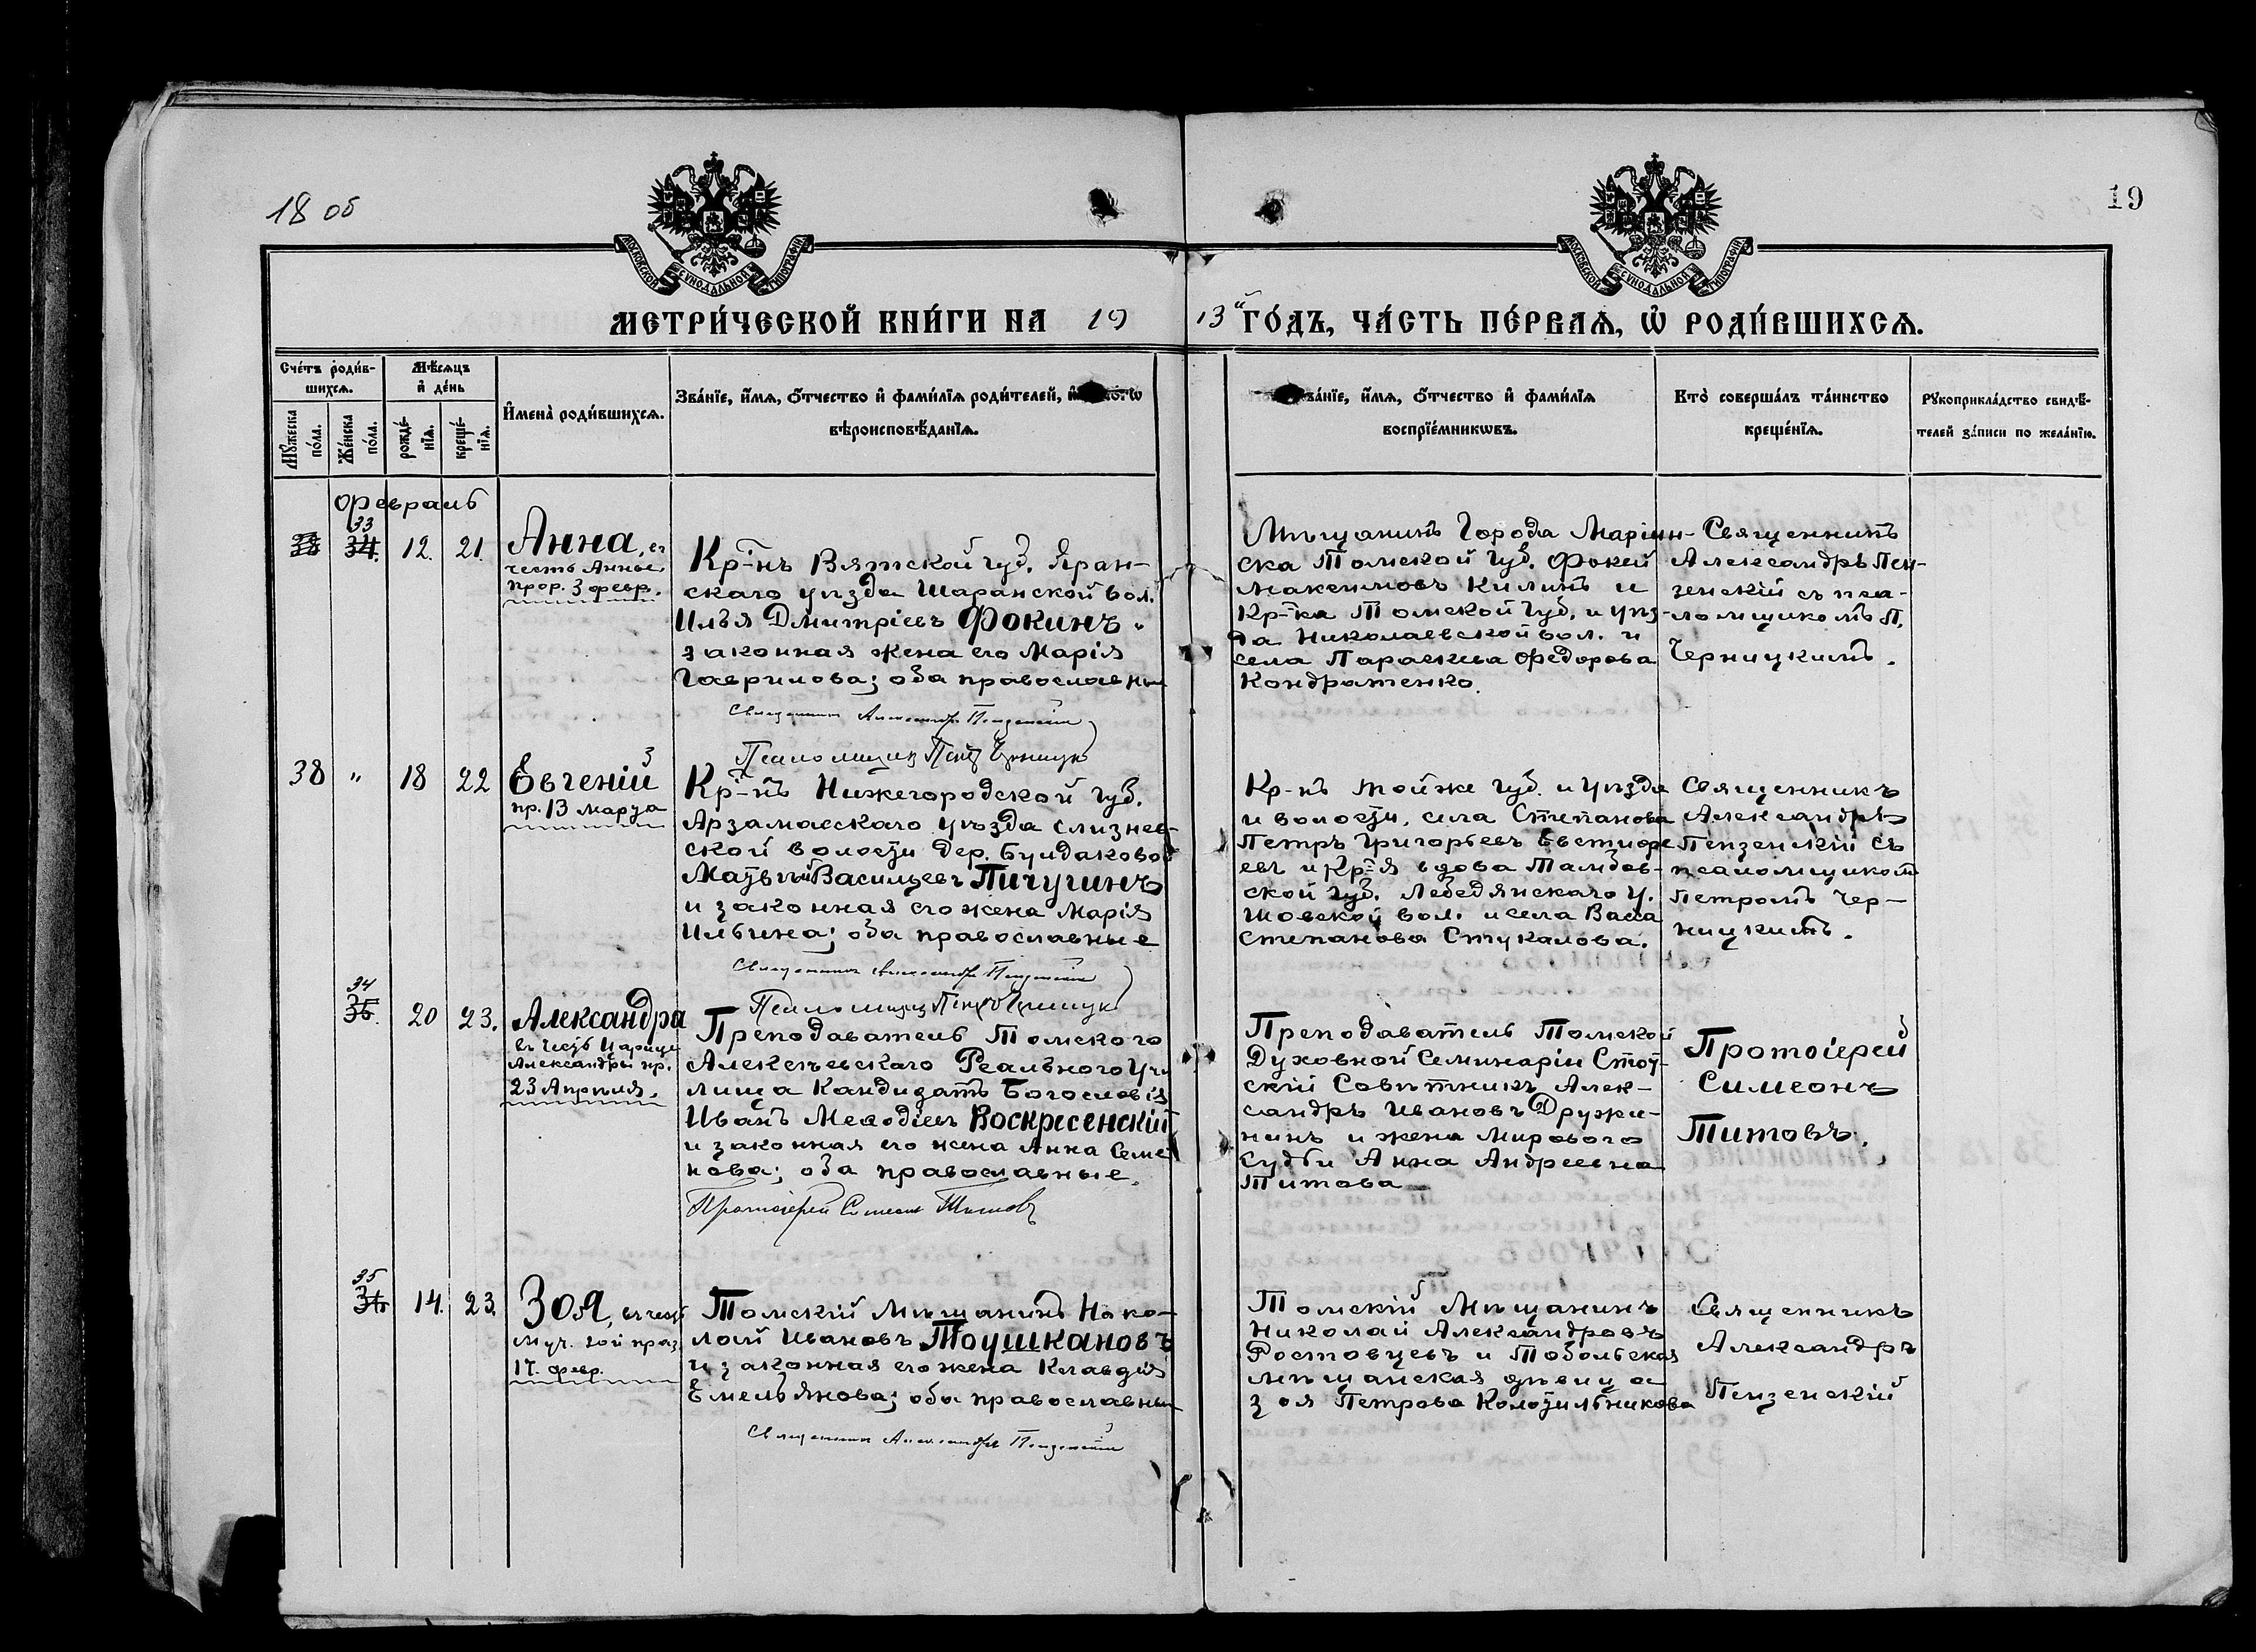 18 об
19
МОСКОВСКОЙ СѴНОДАЛЬНОЙ ТИПОГРАФІИ
МОСКОВСКОЙ СѴНОДАЛЬНОЙ ТИПОГРАФІИ
МЕТРИ́ЧЕСКОЙ КНИ́ГИ НА 19 13й ГО́ДЪ, ЧА́СТЬ ПЕ́РВАѦ, Ѡ҆ РОДИ́ВШИХСѦ.
Сче́тъ роди́в-
шихсѧ.
Мꙋ́жеска по́ла.
Же́нска по́ла.
Мѣ́сѧцъ
и҆ де́нь
рожде́-
нїѧ.
креще́-
нїѧ.
И҆мена̀ роди́вшихсѧ.
Зва́нїе, и҆́мѧ, ѻ҆́тчество и҆ фами́лїѧ роди́телей, и҆
вѣроисповѣ́данїѧ.
ва́нїе, и҆́мѧ, ѻ҆́тчество и҆ фами́лїѧ
воспрїе́мникѡвъ.
Кто̀ соверша́лъ та́инство
креще́нїѧ.
Рꙋкоприкла́дство свидѣ́-
телей за́писи по жела́нїю.
Февраль
33
34.
12.
21.
Анна, въ
честь Анны
прор. 3 февр.
Кр-нъ Вятской губ. Яран-
скаго уѣзда Шаранской вол.
Илья Дмитріевъ Фокинъ и
законная жена его Марія
Гаврилова; оба православны
Священникъ Александръ Пензенскій
Псаломщикъ Петръ Черницкій
Мѣщанинъ Города Маріин-
ска Томской Губ. Фокей
Максимовъ Килинъ и
Кр-ка Томской Губ. и уѣз-
да Николаевской вол. и
села Параскева Федорова
Кондратенко.
Священникъ
Александръ Пен-
зенскій съ пса-
ломщикомъ П.
Черницкимъ.
38
"
18
22
Евгеній
пр. 13 марта
Кр-нъ Нижегородской губ.
Арзамасскаго уѣзда Слизнев-
ской волости дер. Бундаковой
Матвѣй Васильевъ Пичугинъ
и законная его жена Марія
Ильина; оба православные
Священникъ Александръ Пензенскій
Псаломщикъ Петръ Черницкій
Кр-нъ той же губ. и уѣзда
и волости, села Степанова
Петръ Григорьевъ Евстифе
евъ и Кр-я вдова Тамбов-
ской губ. Лебедянскаго у.
Шовской вол. и села Васса
Степанова Стукалова.
Священникъ
Александръ
Пензенскій съ
псаломщикомъ
Петромъ Чер-
ницкимъ.
34
35.
20
23.
Александра
въ честь Царицы
Александры пр.
23 Апрѣля.
Преподаватель Томского
Алексѣевскаго Реального Учи
лища Кандидатъ Богословія
Иванъ Меѳодіевъ Воскресенскій
и законная его жена Анна Семе
нова; оба православные.
Протоіерей Симеонъ Титовъ
Преподаватель Томской
Духовной Семинаріи Стат-
скій Совѣтникъ Алек-
сандръ Ивановъ Дружи-
нинъ и жена Мирового
Судьи Анна Андреевна
Титова
Протоіерей
Симеонъ
Титовъ.
35
36
14.
23.
Зоя, въ честь
муч. Зои праз.
17. февр.
Томскій Мѣщанинъ Нико-
лай Ивановъ Тоушкановъ
и законная его жена Клавдія
Емельянова; оба православны
Священникъ Александръ Пензенскій
Томскій Мѣщанинъ
Николай Александровъ
Ростовцевъ и Тобольская
мѣщанская дѣвица
Зоя Петрова Колотильникова
Священникъ
Александръ
Пензенскій